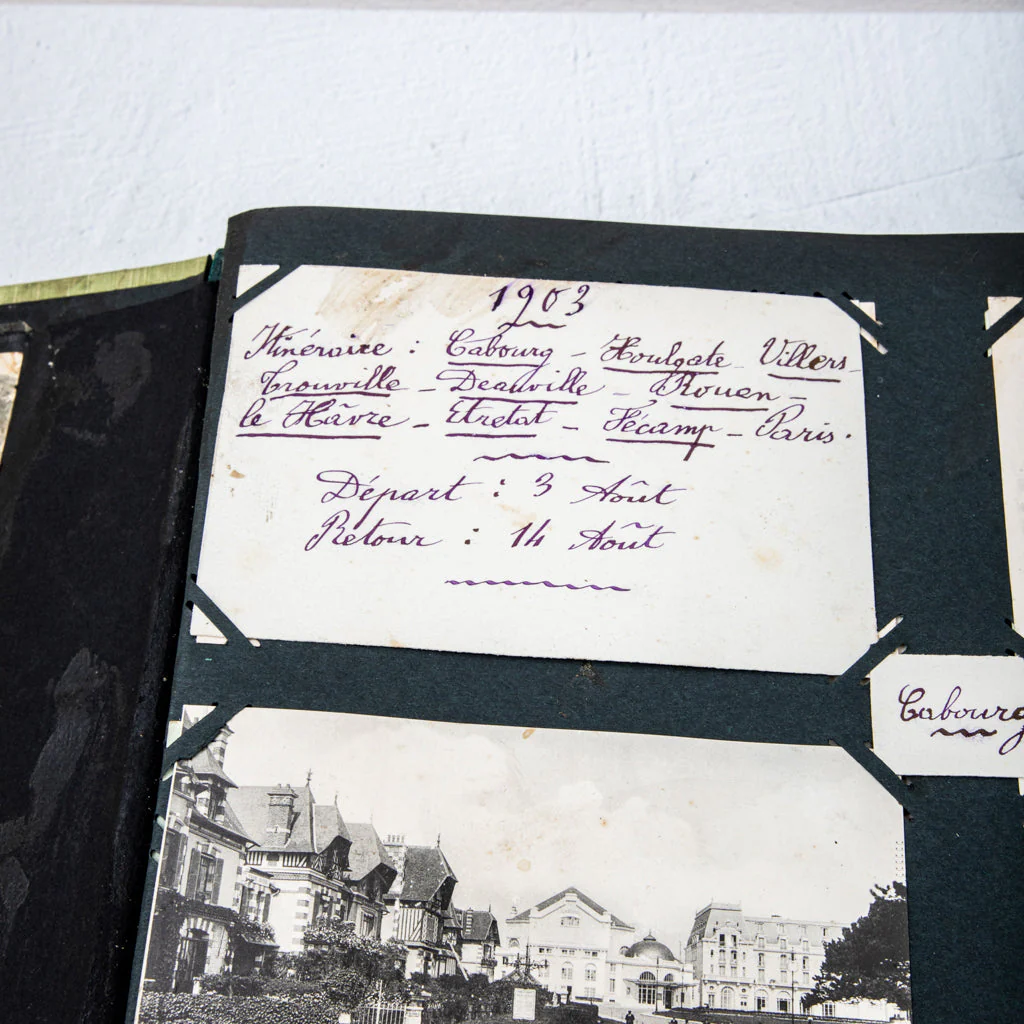 1903
Itinéraire : Cabourg - Houlgate Villers-
Trouville - Deauville - Rouen -
le Hâvre - Etretat - Fécamp - Paris.
Départ : 3 Août
Retour : 14 Août
Cabourg